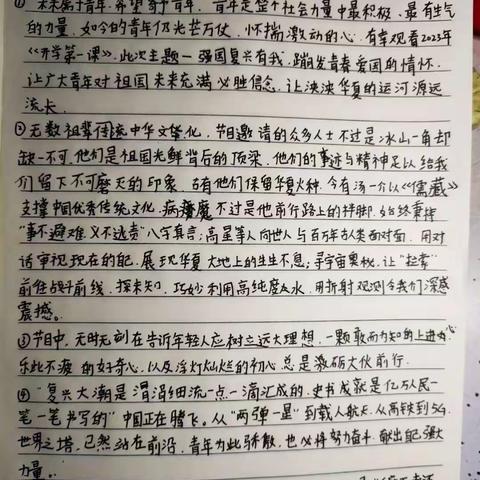 ① 未来属于青年,希望寄予青年,青年是整个社会力量中最积极、最有生气
的力量,如今的青年仍光芒万仗,怀揣激动的心,有幸观看2023年
《开学第一课》,此次主题—强国复兴有我,踊发青春爱国的情怀,
让广大青年对祖国未来充满必胜信念,让泱泱华夏的运河源远
流长.
② 无数祖辈传流中华文化,节目邀请的众多人士不过是冰山一角却
缺一不可,他们是祖国光鲜背后的顶梁,他们的事迹与精神足以给我
们留下不可磨灭的印象,古有他们保留华夏火种,今有汤一介以《儒藏》
支撑中国优秀传统文化,病魔不过是他前行路上的绊脚,始终秉持
"事不避难,义不逃责"八字真言;高星等人向世人与百万年古人类面对面,用对
话审视现在的自己,展现华夏大地上的生生不息;寻宇宙奥秘,让"拉索"
前往战斗前线,探未知,巧妙利用高纯度水,用折射观测令我们深感
震撼。
③ 节目中,无时无刻在告诉年轻人应树立远大理想,一颗敢而为知的上进心
乐此不疲的好奇心,以及浮灯灿烂的初心总是激励大伙前行.
④ "复兴大潮是涓涓细流一点一滴汇成的,史书成就是亿万人民一
笔一笔书写的"中国正在腾飞。从"两弹一星"到载人航天,从高铁到5G,
世界之塔,已然站在前沿,青年为此骄傲,也必将努力奋斗,献出自己强大
力量。